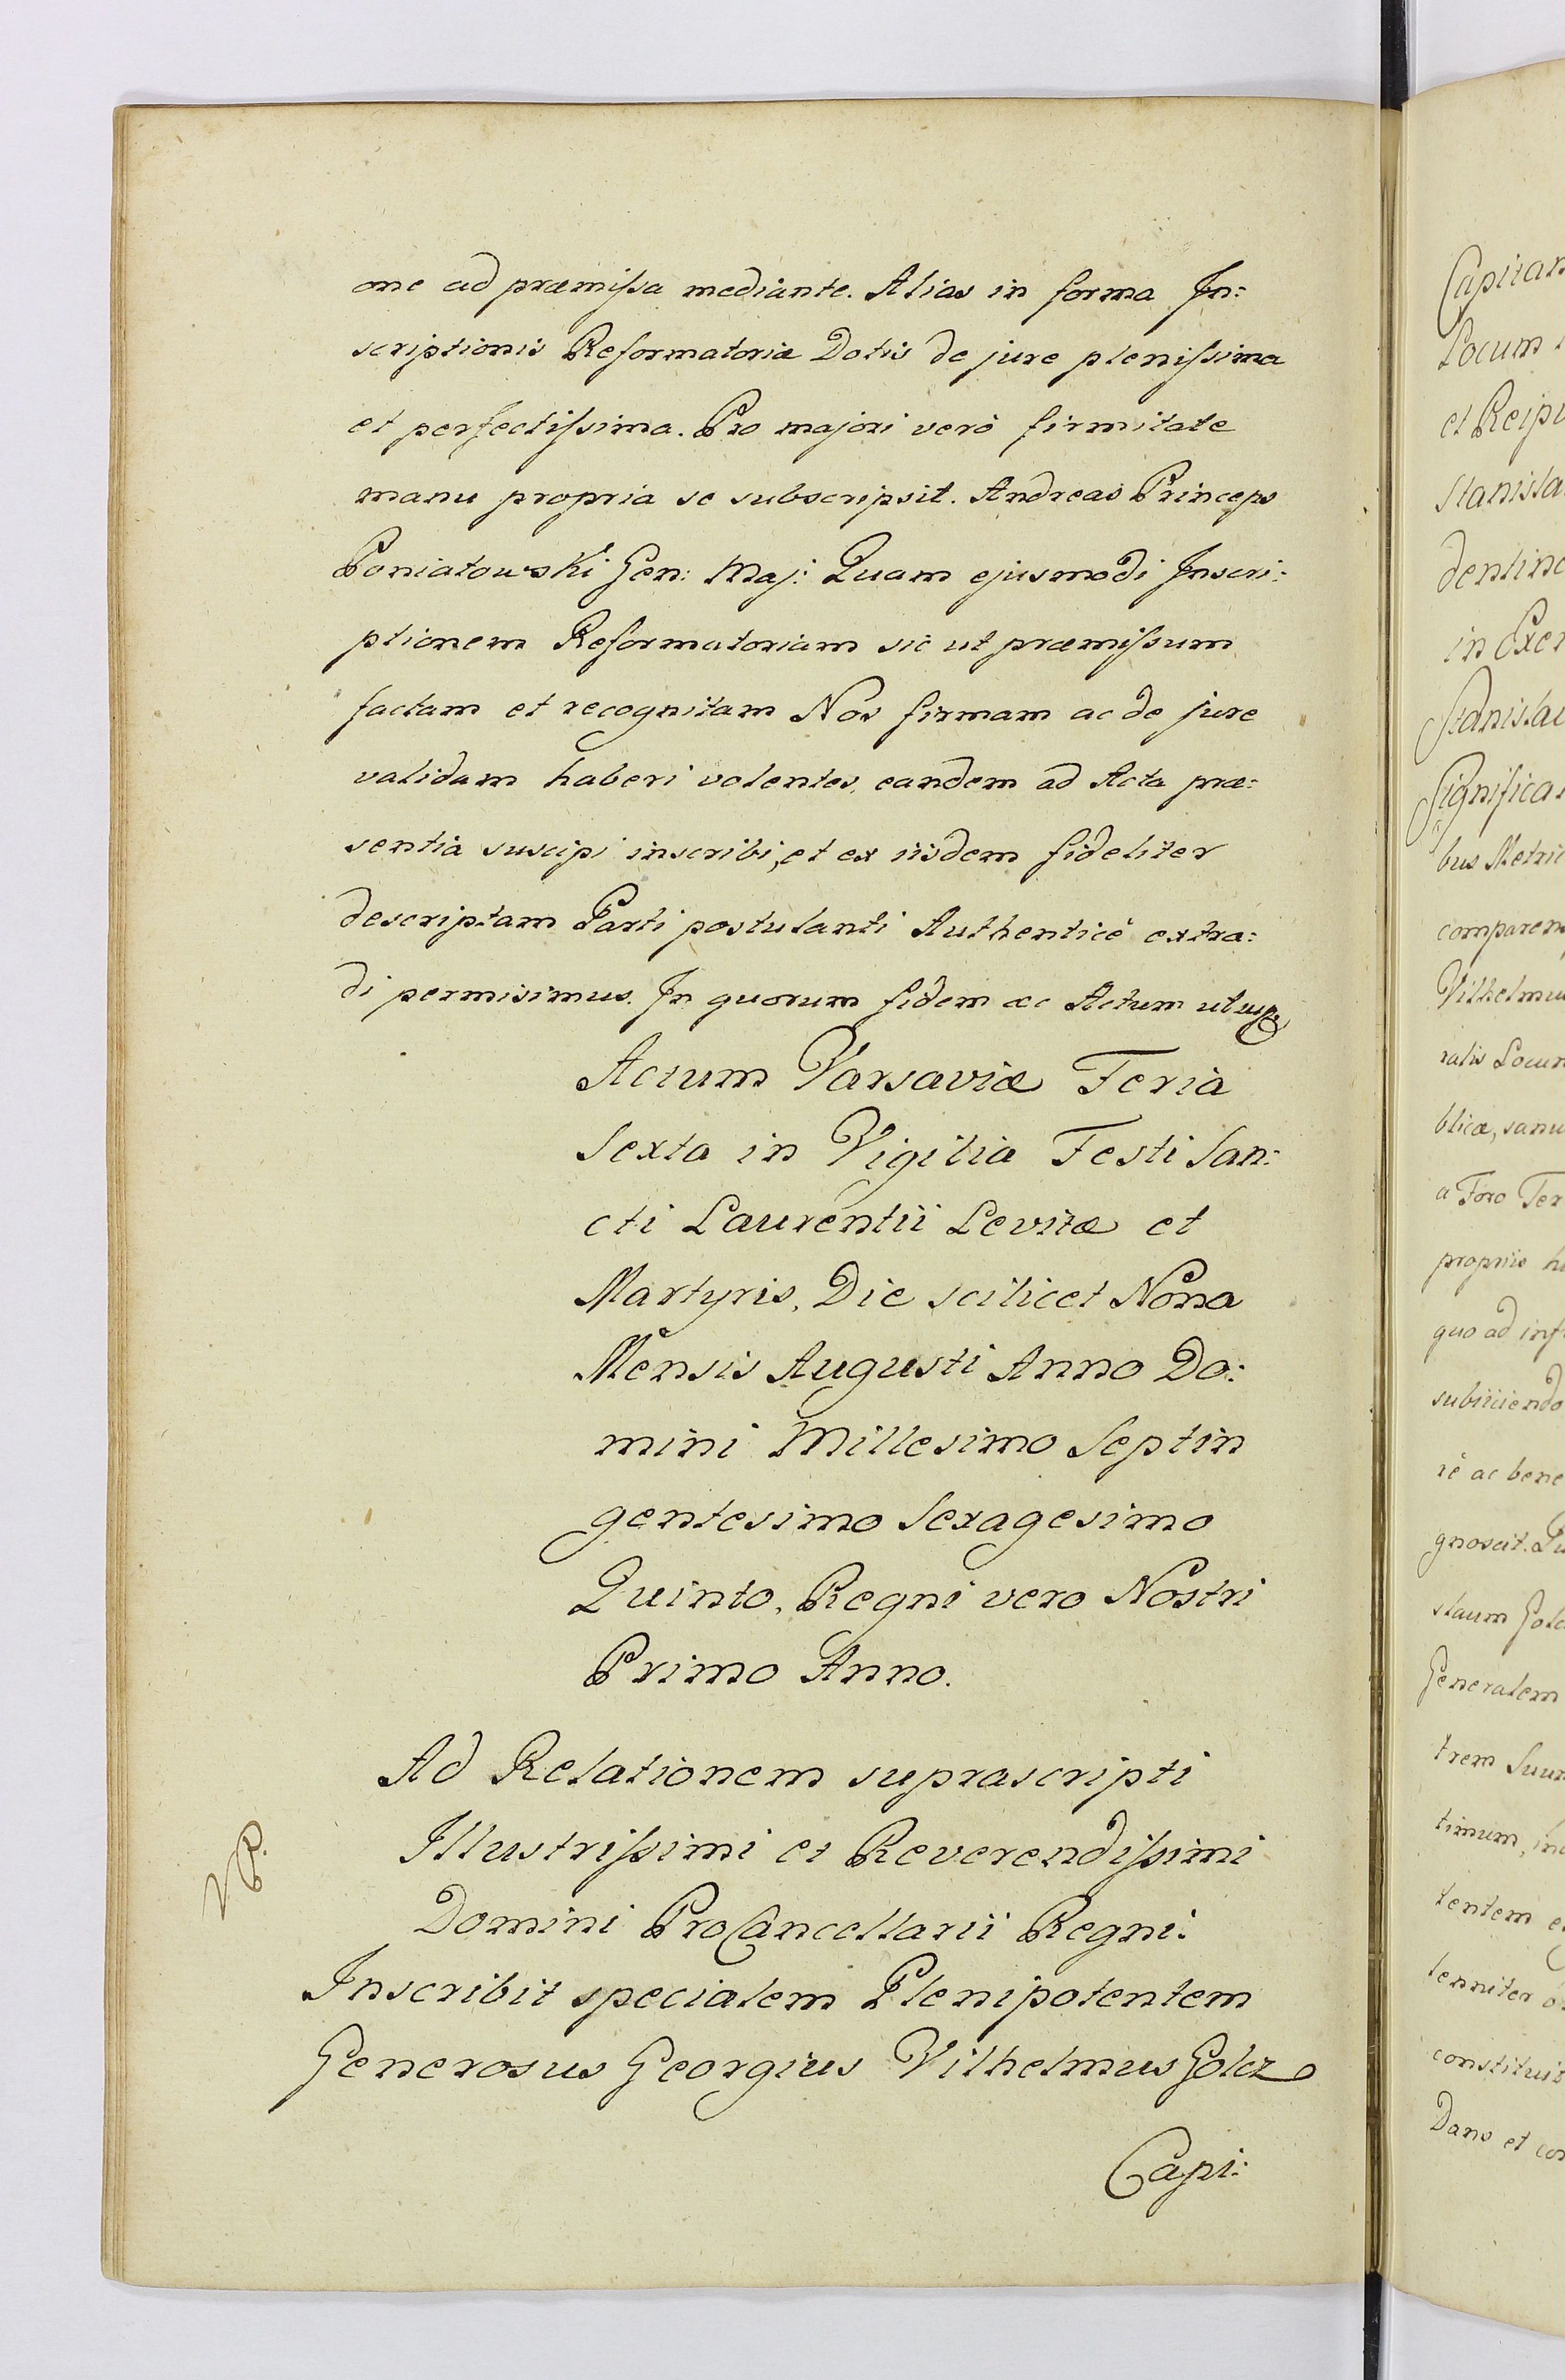 one ad præmiſsa mediante. Alias in forma In:
scriptionis Reformatoriæ Dotis de jure pleniſsima
et perfectiſsima. Pro majori verò firmitate
manu propria se subscripsit. Andreas Princeps
Poniatowski Gen: Maj: Quam ejusmodi Inscri:
ptionem Reformatoriam sic ut præmiſsum
factam et recognitam Nos firmam ac de jure
validam haberi volentes, eandem ad Acta præ:
sentia suscipi inscribi, et ex iisdem fideliter
descriptam Parti postulanti Authenticè extra:
di permisimus. In quorum fidem &c Actum ut usp:
Actum Varsaviæ Feria
Sexta in Vigilia Festi San:
cti Laurentii Levitæ et
Martyris, Die scilicet Nona
Mensis Augusti Anno Do:
mini Millesimo Septin
gentesimo Sexagesimo
Quinto, Regni vero Nostri
Primo Anno.
Ad Relationem suprascripti
Illustriſsimi et Reverendiſsimi
Domini ProCancellarii Regni.
Inscribit specialem Plenipotentem
Generosus Georgius Vilhelmus Golcz
Capi:
Capitan
Locum
et Reipu
Stanisla
dentino
in Exer
Stanislai
Significa
bus Metric
comparen
Vilhelmu
ralis Locum
blicæ, sanu
a Foro Ter
propriis h
quo ad inf
subiiciendo
rè ac bene
gnoscit. Qu
slaum Golc
Generalem
trem Suum
timum, in
tentem e
lenniter o
constituit
Dans et con